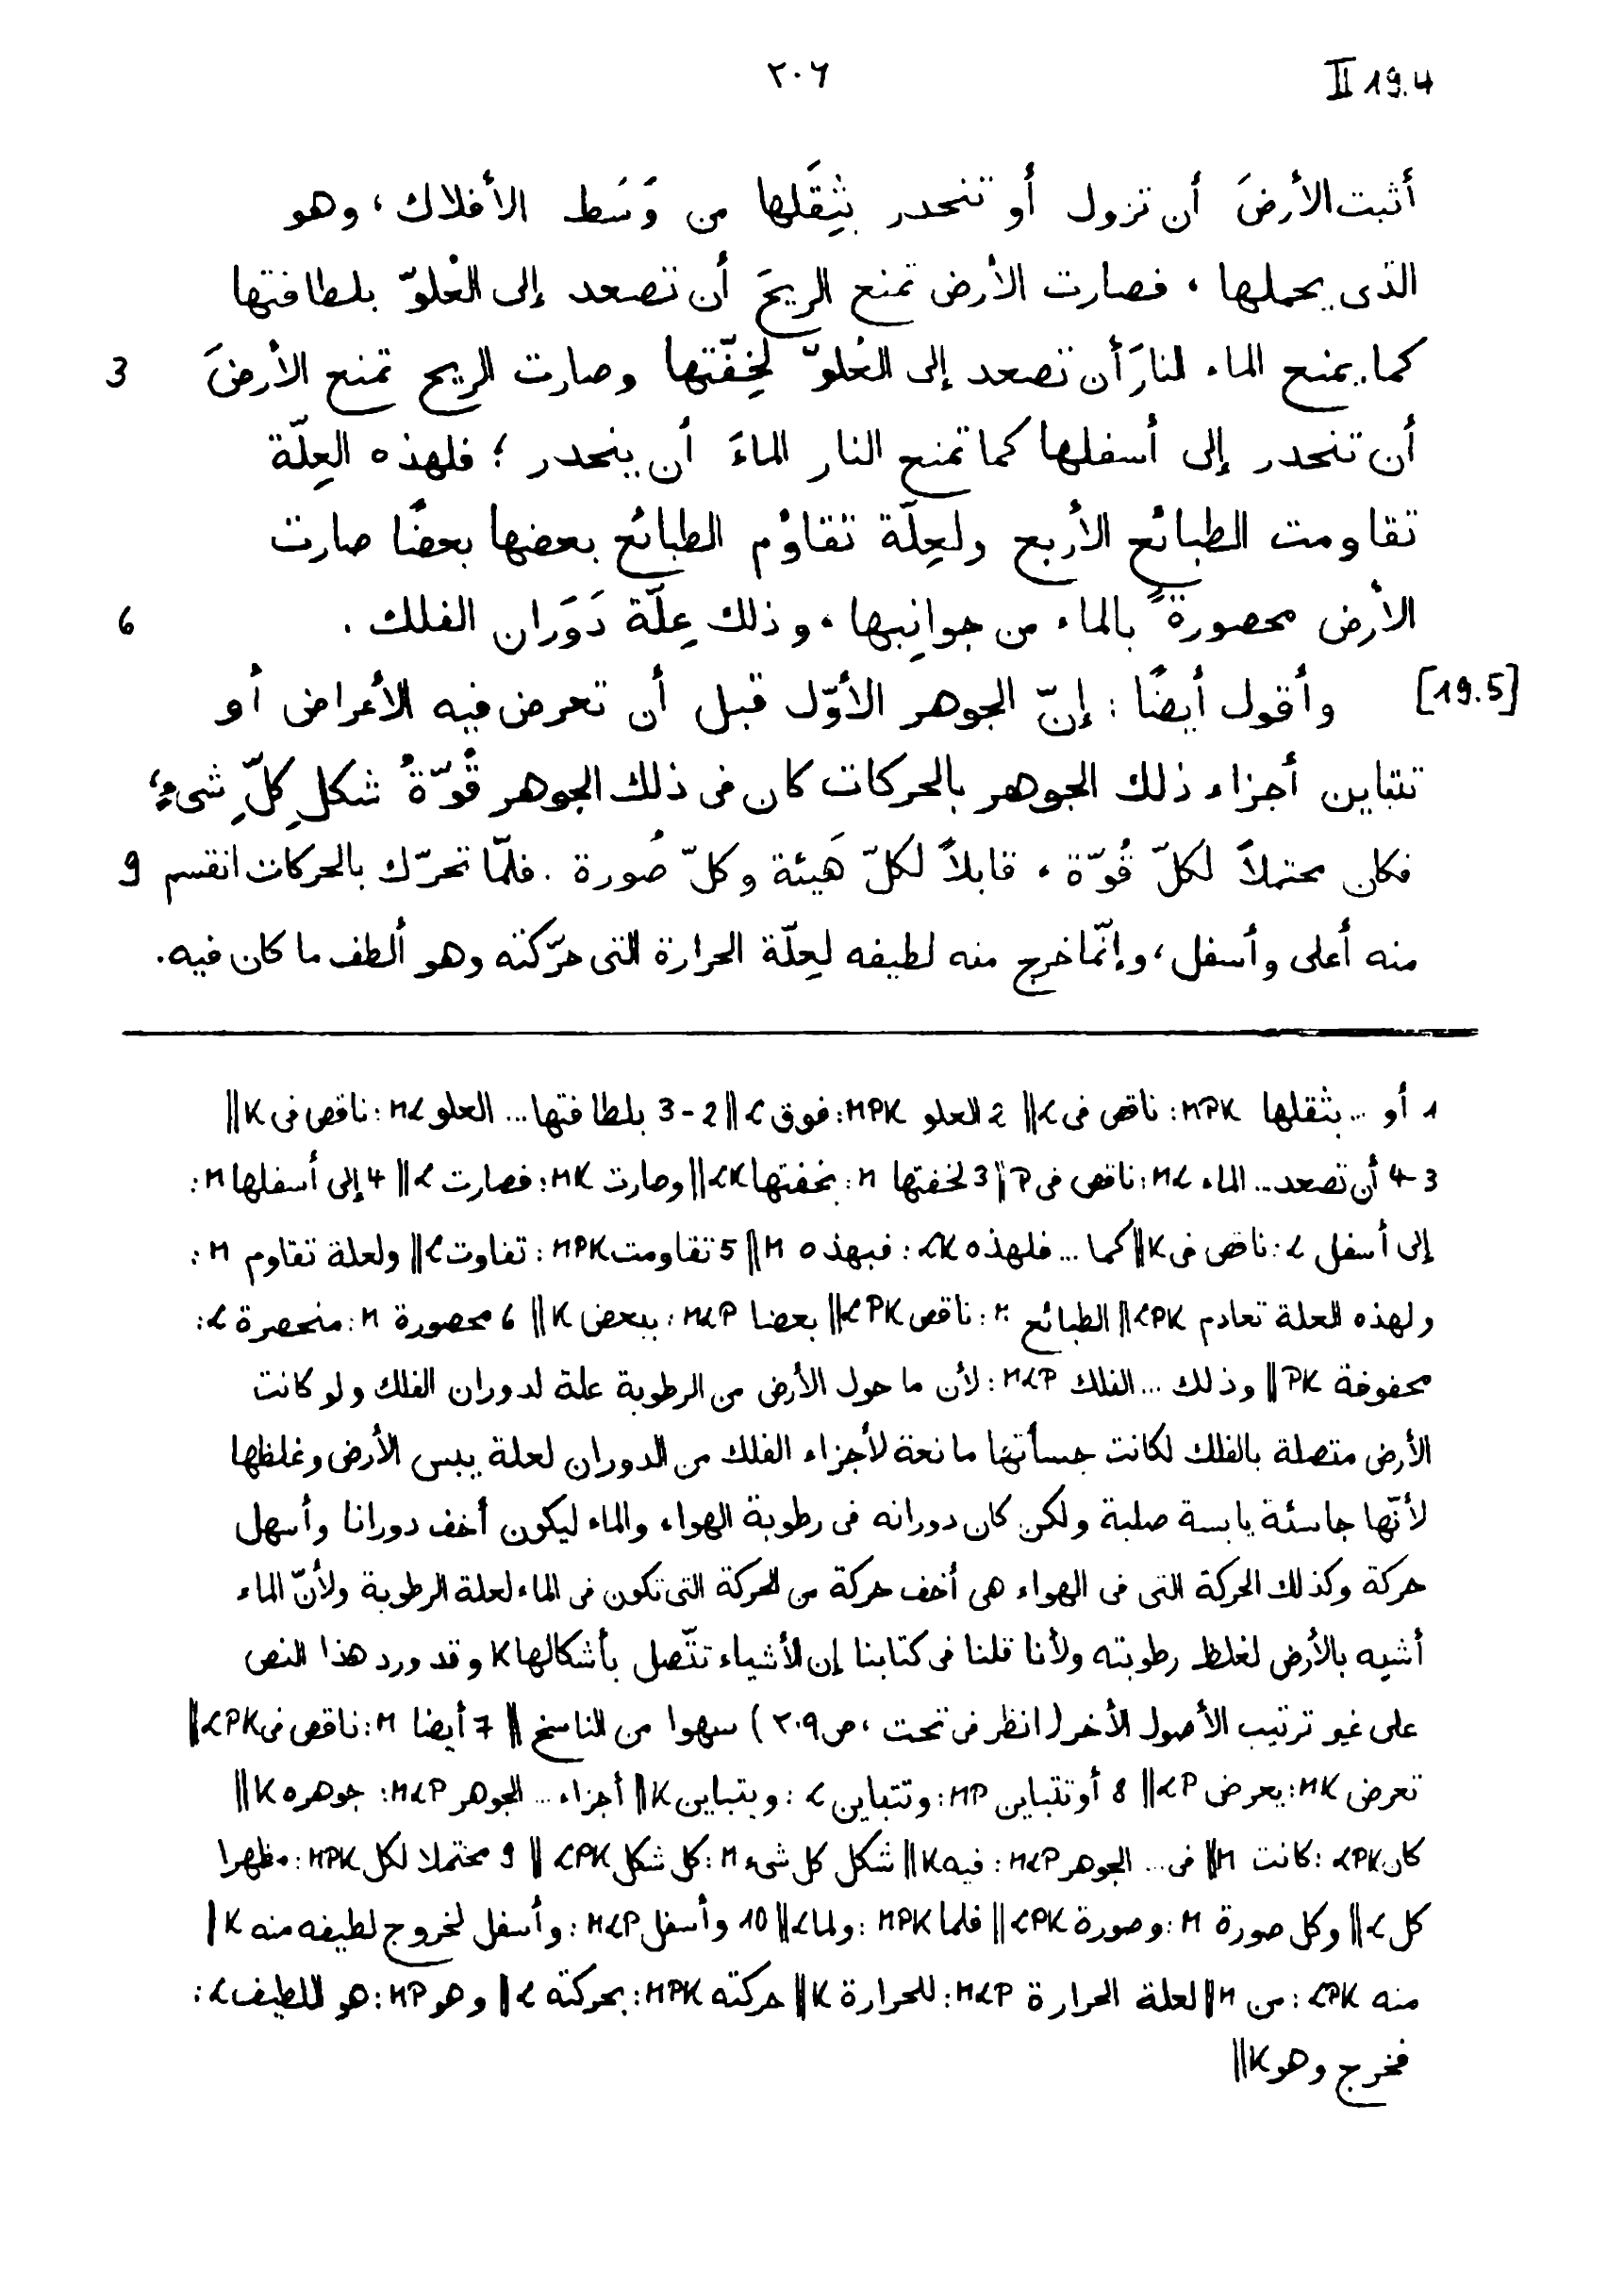 II 19.4
٢٠٦
أثبت الأرضَ أن تزول أو تنحدر بثِقَلها من وَسَط الأفلاك، وهو
الذى يحملها، فصارت الأرض تمنع الريحَ أن تصعد إلى العُلوّ بلطافتها
كما يمنع الماء النارَ أن تصعد إلى العُلوّ لخِفّتها وصارت الريح تمنع الأرضَ 3
أن تنحدر إلى أسفلها كما تمنع النار الماءَ أن ينحدر؛ فلهذه العِلّة
تقاومت الطبائع الأربع ولعِلّة تقاوُم الطبائع بعضها بعضًا صارت
الأرض محصورةً بالماء من جوانِبها، وذلك عِلّة دَوَران الفلك. 6
[19.5] وأقول أيضًا: إنّ الجوهر الأوّل قبل أن تعرض فيه الأعراض أو
تتباين أجزاء ذلك الجوهر بالحركات كان فى ذلك الجوهر قُوّةُ شكلِ كلِّ شىءٍ؛
فكان محتملاً لكلّ قُوّة، قابلاً لكلّ هَيئة وكلّ صُورة. فلمّا تحرّك بالحركات انقسم 9
منه أعلى وأسفل، وإنّما خرج منه لطيفه لعِلّة الحرارة التى حرّكته وهو ألطف ما كان فيه.
1 أو ... بثقلها MPK: ناقص فى L || 2 العلو MPK: فوق L || 2-3 بلطافتها ... العلو ML: ناقص فى K ||
3-4 أن تصعد ... الماء ML: ناقص فى P || 3 لخفتها M: بخفتها LK || وصارت MK: فصارت L || 4 إلى أسفلها M:
إلى أسفل L: ناقص فى K || كما ... فلهذه LK: فبهذه M || 5 تقاومت MPK: تفاوت L || ولعلة تقاوم M:
ولهذه العلة تعادم LPK || الطبائع M: ناقص LPK || بعضا MLP: ببعض K || 6 محصورة M: منحصرة L:
محفوفة PK || وذلك ... الفلك MLP: لأن ما حول الأرض من الرطوبة علة لدوران الفلك ولو كانت
الأرض متصلة بالفلك لكانت جسأتها مانعة لأجزاء الفلك من الدوران لعلة يبس الأرض وغلظها
لأنّها جاسئة يابسة صلبة ولكن كان دورانه فى رطوبة الهواء والماء ليكون أخف دورانا وأسهل
حركة وكذلك الحركة التى فى الهواء هى أخف حركة من الحركة التى تكون فى الماء لعلة الرطوبة ولأنّ الماء
أشبه بالأرض لغلظ رطوبته ولأنا قلنا فى كتابنا إن الأشياء تتّصل بأشكالها K وقد ورد هذا النص
على غير ترتيب الأصول الأخر (انظر فى تحت، ص ٢٠٩) سهوا من الناسخ || 7 أيضا M: ناقص فى LPK ||
تعرض MK: يعرض LP || 8 أو تتباين MP: وتتباين L: ويتباين K || أجزاء ... الجوهر MLP: جوهره K ||
كان LPK: كانت M || فى ... الجوهر MLP: فيه K || شكل كل شىء M: كل شكل LPK || 9 محتملا لكل MPK: مظهرا
كل L || وكل صورة M: وصورة LPK || فلما MPK: ولما L || 10 وأسفل MLP: وأسفل لخروج لطيفه منه K ||
منه LPK: من M || لعلة الحرارة MLP: للحرارة K || حركته MPK: بحركته L || وهو MP: هو اللطيف L:
فخرج وهو K ||